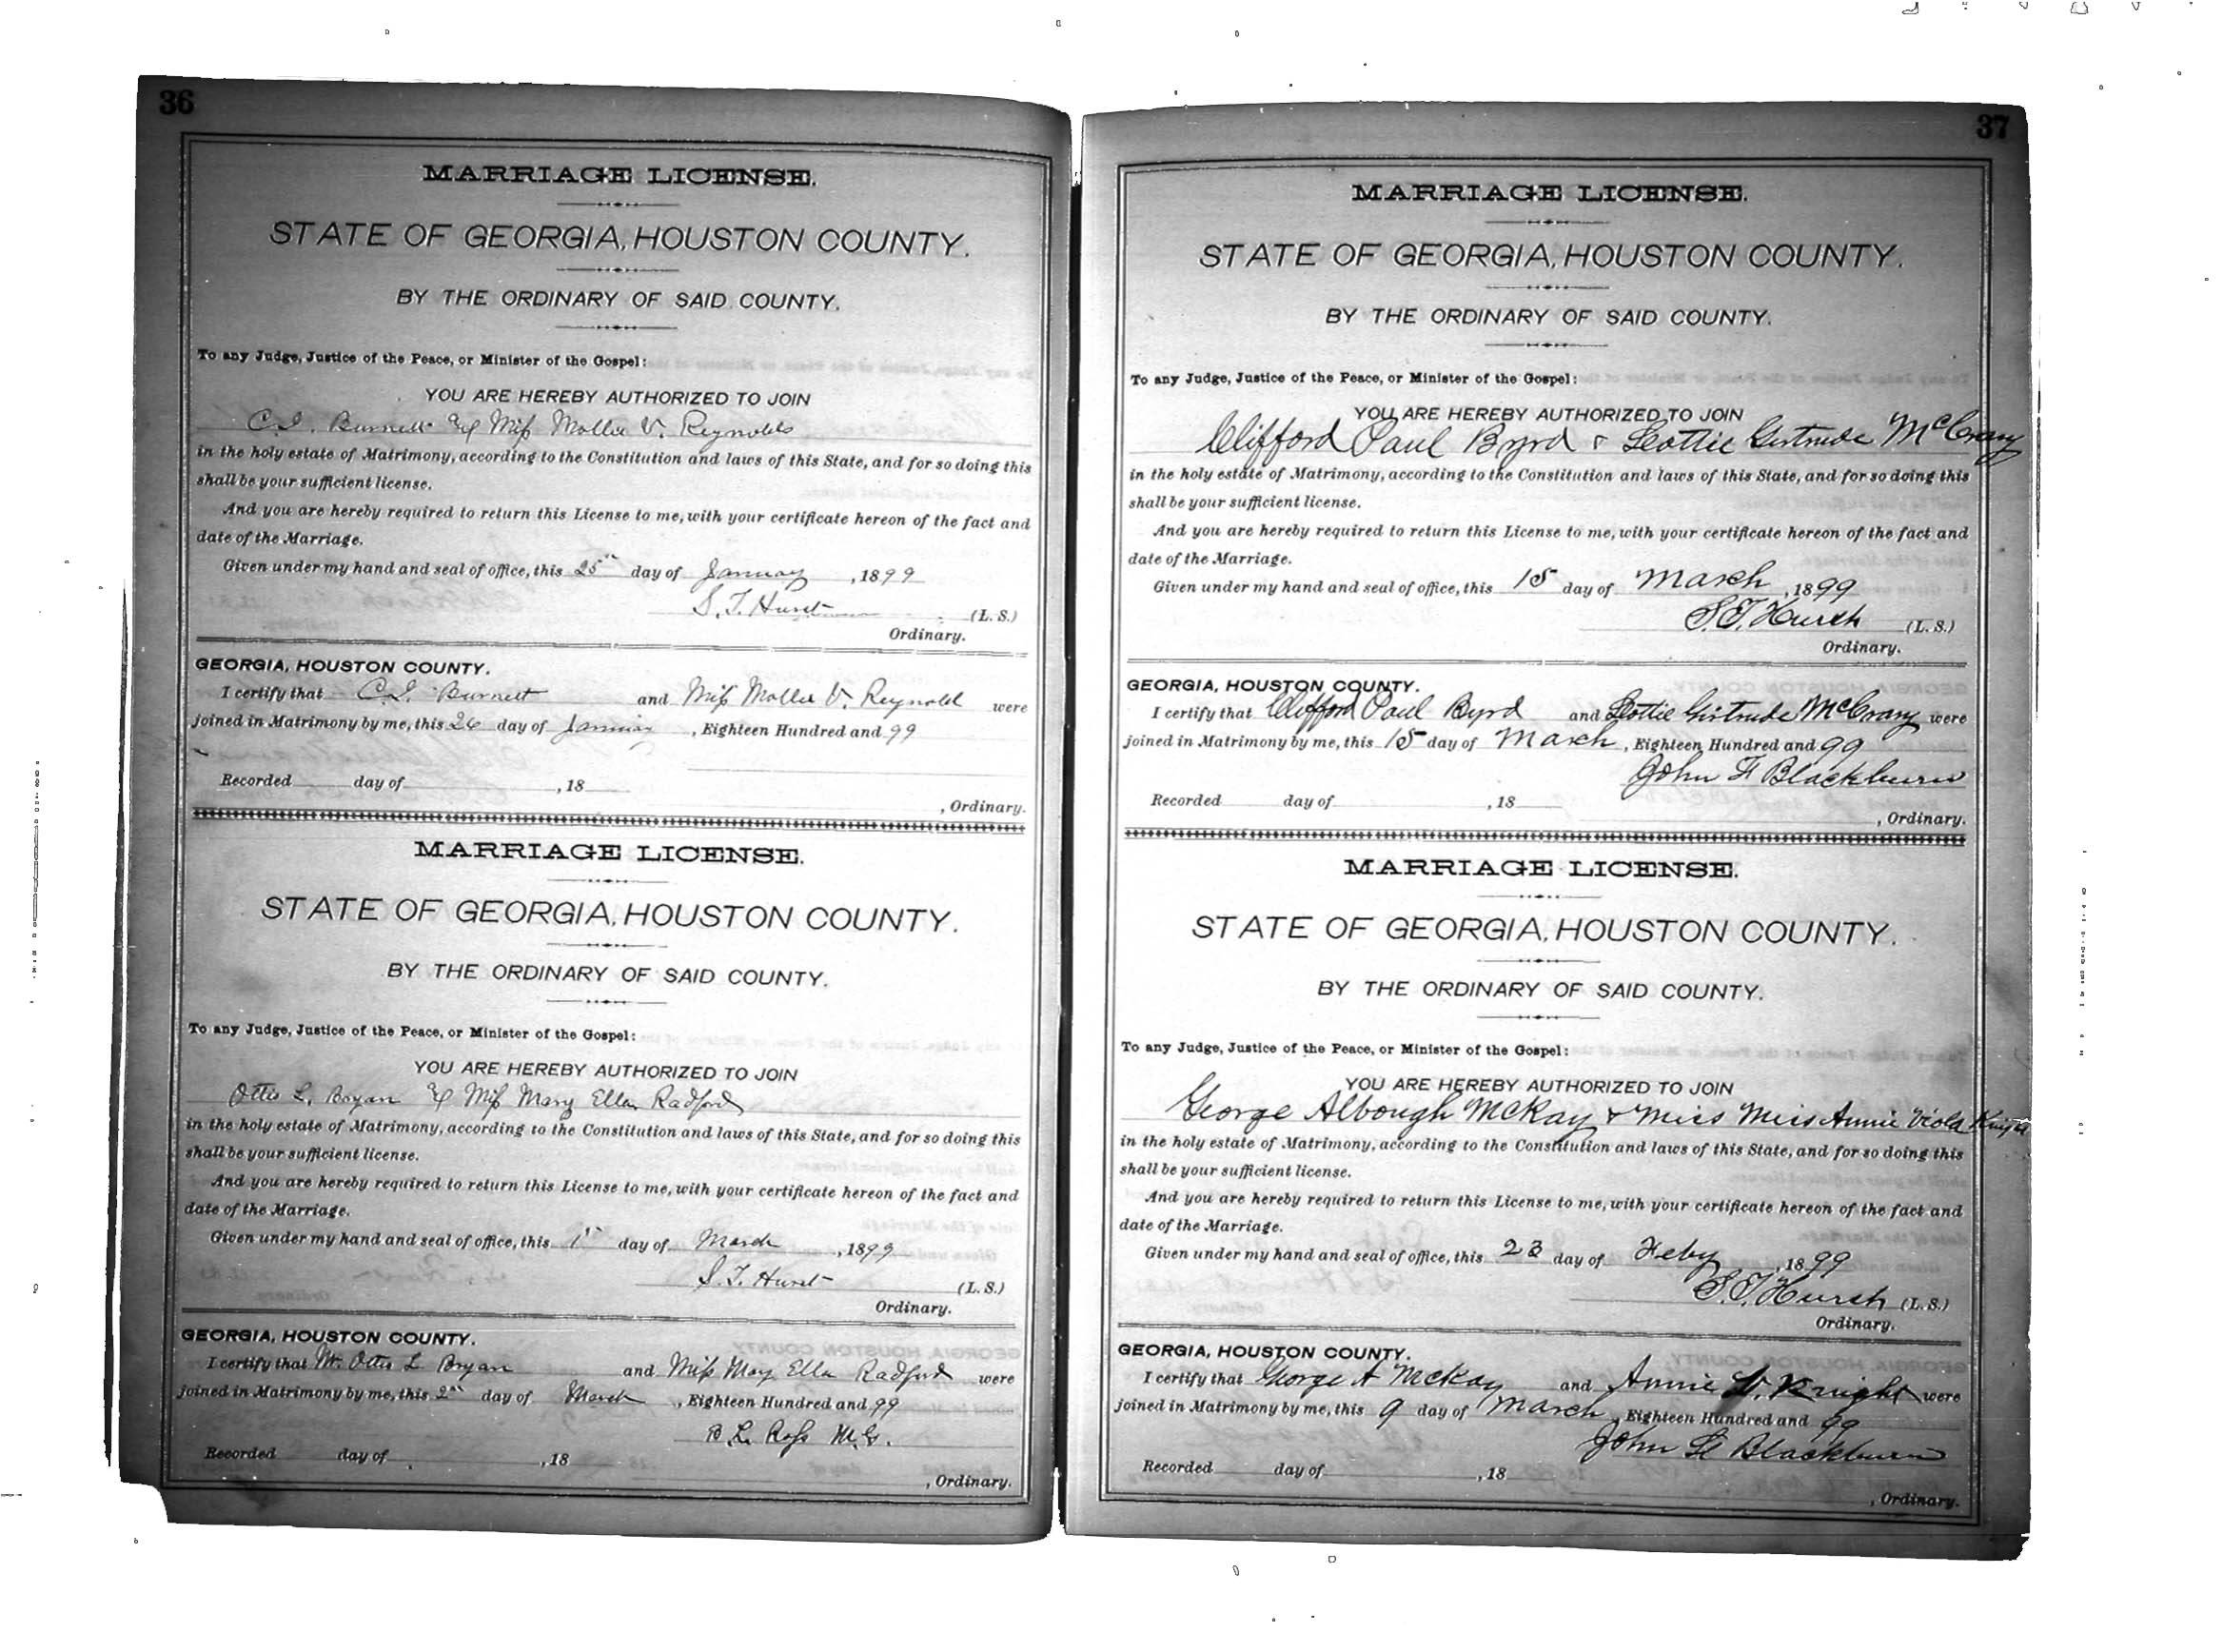 36
MARRIAGE LICENSE.
STATE OF GEORGIA, HOUSTON COUNTY.
BY THE ORDINARY OF SAID COUNTY.
To any Judge, Justice of the Peace, or Minister of the Gospel:
YOU ARE HEREBY AUTHORIZED TO JOIN
Burnett & Miss Mollie V. Reynolds
in the holy estate of Matrimony, according to the Constitution and laws of this State, and for so doing this
shall be your sufficient license.
And you are hereby required to return this License to me, with your certificate hereon of the fact and
date of the Marriage.
Given under my hand and seal of office, this 25th day of January, 1899
S. T. Hurst (L. S.)
Ordinary.
GEORGIA, HOUSTON COUNTY.
I certify that Burnett and Miss Mollie V. Reynold were
joined in Matrimony by me, this 26 day of January, Eighteen Hundred and 99
Recorded day of , 18
, Ordinary.
MARRIAGE LICENSE.
STATE OF GEORGIA, HOUSTON COUNTY.
BY THE ORDINARY OF SAID COUNTY.
To any Judge, Justice of the Peace, or Minister of the Gospel:
YOU ARE HEREBY AUTHORIZED TO JOIN
Ottis L. Bryan & Miss Mary Ellen Radford
in the holy estate of Matrimony, according to the Constitution and laws of this State, and for so doing this
shall be your sufficient license.
And you are hereby required to return this License to me, with your certificate hereon of the fact and
date of the Marriage.
Given under my hand and seal of office, this 1st day of March, 1899
S. T. Hurst (L. S.)
Ordinary.
GEORGIA, HOUSTON COUNTY.
I certify that Mr. Ottis L Bryan and Miss Mary Ellen Radford were
joined in Matrimony by me, this 2nd day of March, Eighteen Hundred and 99
B. L. Ross M.G.
Recorded day of , 18
, Ordinary.
37
MARRIAGE LICENSE.
STATE OF GEORGIA, HOUSTON COUNTY.
BY THE ORDINARY OF SAID COUNTY.
To any Judge, Justice of the Peace, or Minister of the Gospel:
YOU ARE HEREBY AUTHORIZED TO JOIN
Clifford Paul Byrd & Lottie Gertrude McCrary
in the holy estate of Matrimony, according to the Constitution and laws of this State, and for so doing this
shall be your sufficient license.
And you are hereby required to return this License to me, with your certificate hereon of the fact and
date of the Marriage.
Given under my hand and seal of office, this 15 day of March, 1899
S. T. Hurst (L. S.)
Ordinary.
GEORGIA, HOUSTON COUNTY.
I certify that Clifford Paul Byrd and Lottie Gertrude McCrary were
joined in Matrimony by me, this 15 day of March, Eighteen Hundred and 99
John F Blackburn
Recorded day of , 18
, Ordinary.
MARRIAGE LICENSE.
STATE OF GEORGIA, HOUSTON COUNTY.
BY THE ORDINARY OF SAID COUNTY.
To any Judge, Justice of the Peace, or Minister of the Gospel:
YOU ARE HEREBY AUTHORIZED TO JOIN
George Albough McKay & Miss Miss Annie Viola Knight
in the holy estate of Matrimony, according to the Constitution and laws of this State, and for so doing this
shall be your sufficient license.
And you are hereby required to return this License to me, with your certificate hereon of the fact and
date of the Marriage.
Given under my hand and seal of office, this 23 day of Feby, 1899
S. T. Hurst (L. S.)
Ordinary.
GEORGIA, HOUSTON COUNTY.
I certify that George A McKay and Annie V. Knight were
joined in Matrimony by me, this 9 day of March, Eighteen Hundred and 99
John F Blackburn
Recorded day of , 18
, Ordinary.